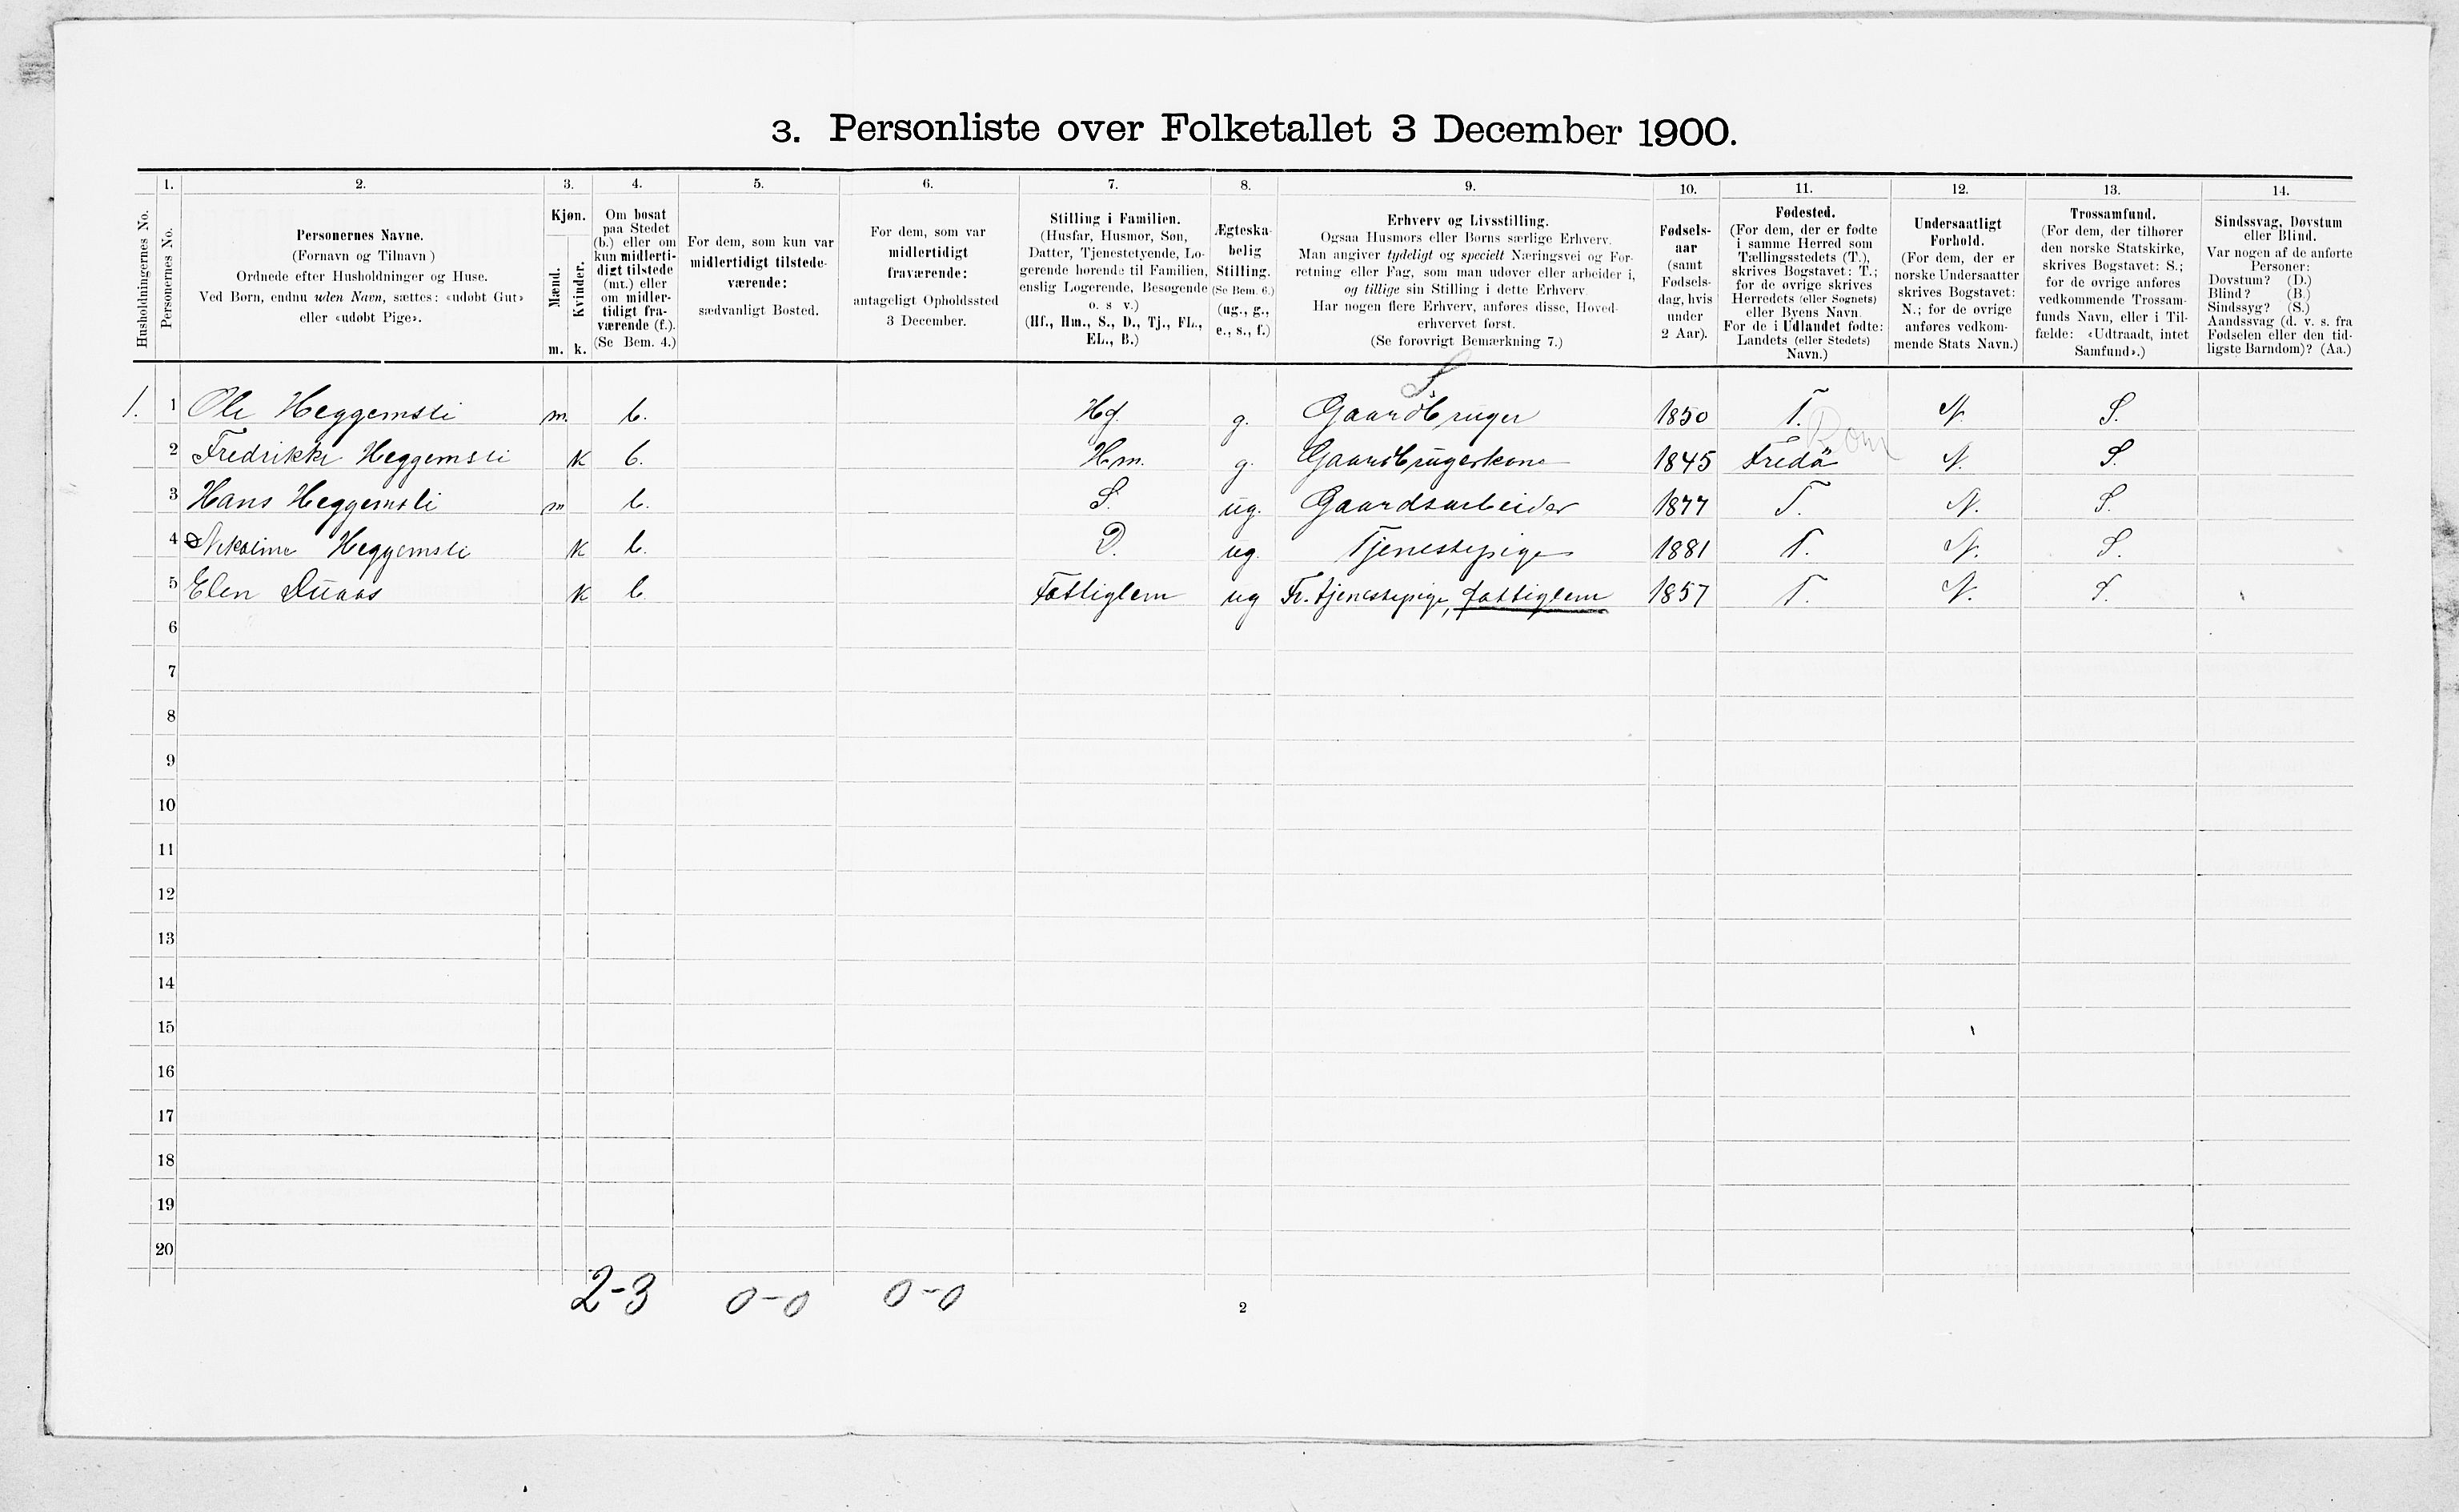 3. Personliste over Folketallet 3 December 1900.
1. 2. 3. 4. 5. 6. 7. 8. 9. 10. 11. 12. 13. 14.
Husholdningernes No.
Personernes No.
Personernes Navne.
(Fornavn og Tilnavn)
Ordnede efter Husholdninger og Huse.
Ved Børn, endnu uden Navn, sættes: «udøbt Gut»
eller «udøbt Pige».
Kjøn.
Mænd.
Kvinder.
m. k.
Om bosat
paa Stedet
(b.) eller om
kun midlerti-
digt tilstede
(mt.) eller
om midler-
tidigt fra-
værende (f.).
(Se Bem. 4.)
For dem, som kun var
midlertidigt tilstede-
værende:
sædvanligt Bosted.
For dem, som var
midlertidigt
fraværende:
antageligt Opholdssted
3 December.
Stilling i Familien.
(Husfar, Husmor, Søn,
Datter, Tjenestetyende, Lo-
gerende hørende til Familien,
enslig Logerende, Besøgende
o. s v.)
(Hf., Hm., S., D., Tj., FL.,
EL., B.)
Ægteska-
belig
Stilling.
(Se Bem. 6.)
(ug., g.,
e., s., f.)
Erhverv og Livsstilling.
Ogsaa Husmors eller Børns særlige Erhverv.
Man angiver tydeligt og specielt Næringsvei og For-
retning eller Fag, som man udøver eller arbeider i,
og tillige sin Stilling i dette Erhverv.
Har nogen flere Erhverv, anføres disse, Hoved-
erhvervet først.
(Se forøvrigt Bemærkning 7.)
Fødsels-
aar
(samt
Fødsels-
dag, hvis
under
2 Aar).
Fødested.
(For dem, der er fødte
i samme Herred som
Tællingsstedets (T.),
skrives Bogstavet: T.;
for de øvrige skrives
Herredets (eller Sognets)
eller Byens Navn.
For de i Udlandet fødte:
Landets (eller Stedets)
Navn.)
Undersaatligt
Forhold.
(For dem, der er
norske Undersaatter
skrives Bogstavet:
N.; for de øvrige
anføres vedkom-
mende Stats Navn.)
Trossamfund.
(For dem, der tilhører
den norske Statskirke,
skrives Bogstavet: S.;
for de øvrige anføres
vedkommende Trossam-
funds Navn, eller i Til-
fælde: «Udtraadt, intet
Samfund».)
Sindssvag, Døvstum
eller Blind.
Var nogen af de anførte
Personer:
Døvstum? (D.)
Blind? (B.)
Sindssyg? (S.)
Aandssvag (d. v. s. fra
Fødselen eller den tid-
ligste Barndom)? (Aa.)
S
1. 1 Ole Heggemsli m. b. Hf. g. Gaardbruger 1850 T. N. S.
Rom
2 Fredrikke Heggemsli k b. Hm. g. Gaardbrugerkone 1845 Fredö N. S.
3 Hans Heggemsli m b. S. ug. Gaardsarbeider 1877 T. N. S.
4 Nikoline Heggemsli k b. D. ug. Tjenestepige 1881 T. N. S.
5 Elen Duaas k b. Fattiglem ug Fr. tjenestepige, fattiglem 1857 T. N. S.
6
7
8
9
10
11
12
13
14
15
16
17
18
19
20
2-3 0-0 0-0
2